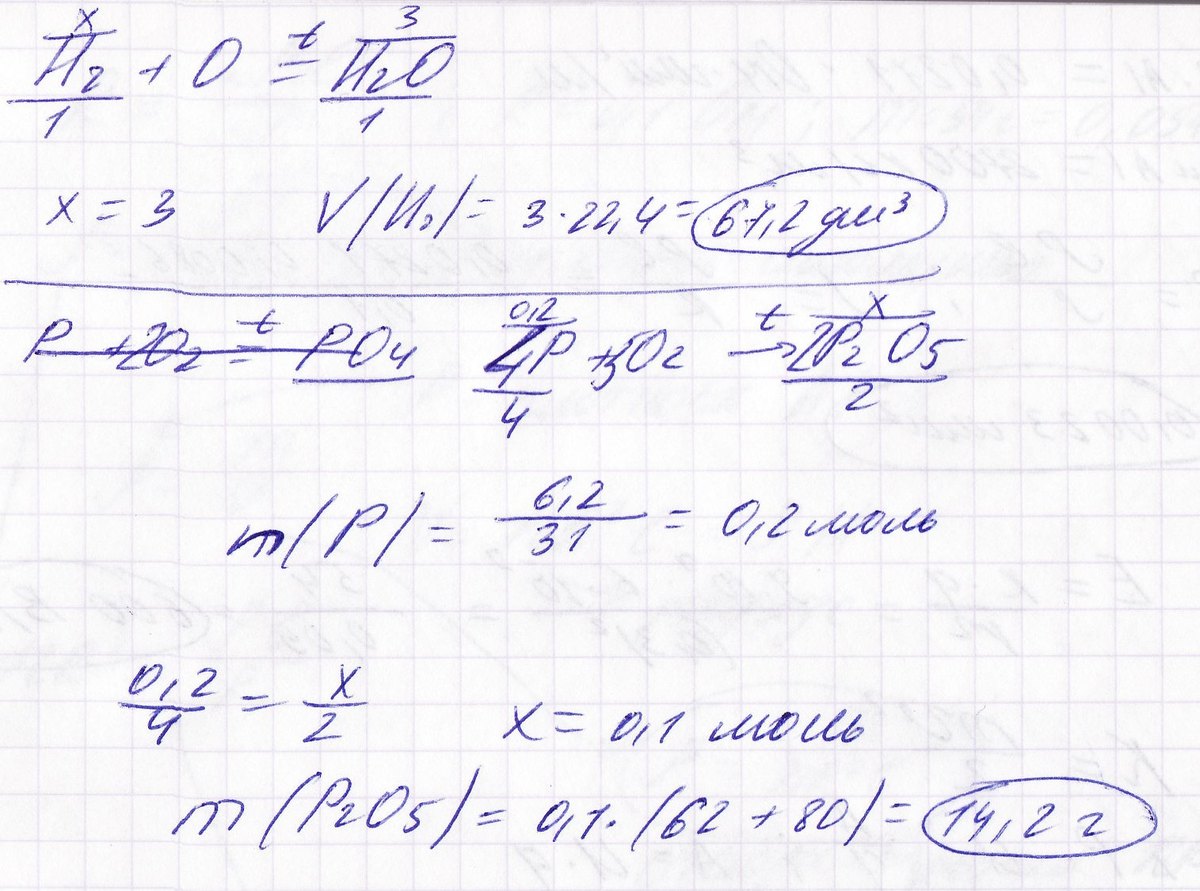 x 3
H₂ + O =ᵗ H₂O
1 1
x = 3 V(H₂) = 3·22,4 = 67,2 дм³
0,2 x
P + 2O₂ =ᵗ PO₄ 4P + 5O₂ →ᵗ 2P₂O₅
4 2
m(P) = 6,2/31 = 0,2 моль
0,2/4 = x/2 x = 0,1 моль
m(P₂O₅) = 0,1·(62 + 80) = 14,2 г